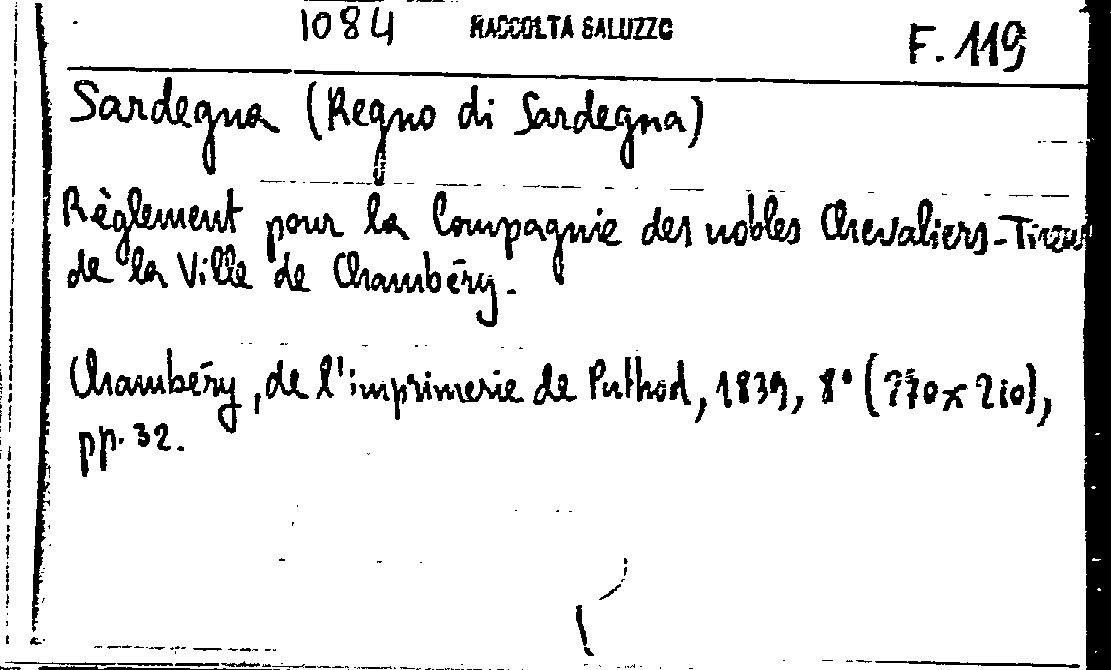 1084 RACCOLTA SALUZZO F. 119
Sardegna (Regno di Sardegna)
Règlement pour la Compagnie des nobles Chevaliers-Tireurs
de la Ville de Chambéry.
Chambéry, de l'imprimerie de Puthod, 1839, 8° ( x 210),
pp. 32.